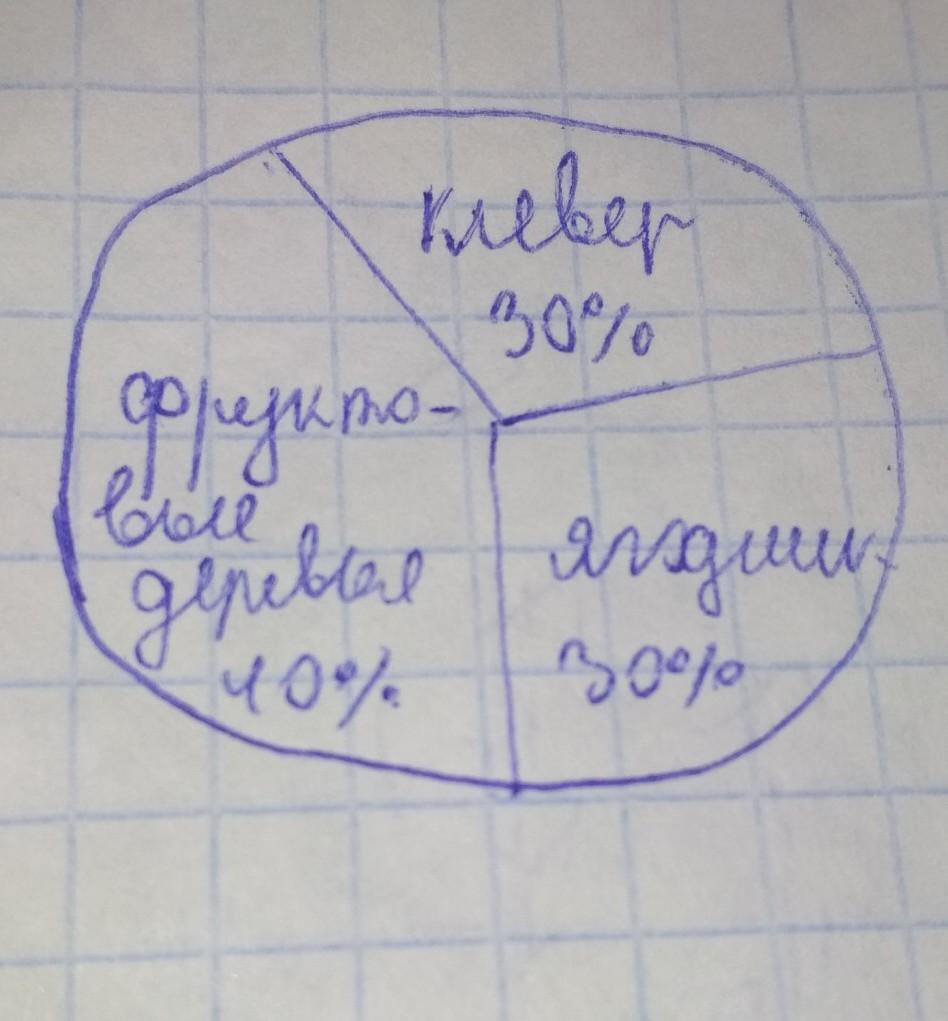 клевер
30%
фрукто-
вые
деревья
40%
ягодник
30%